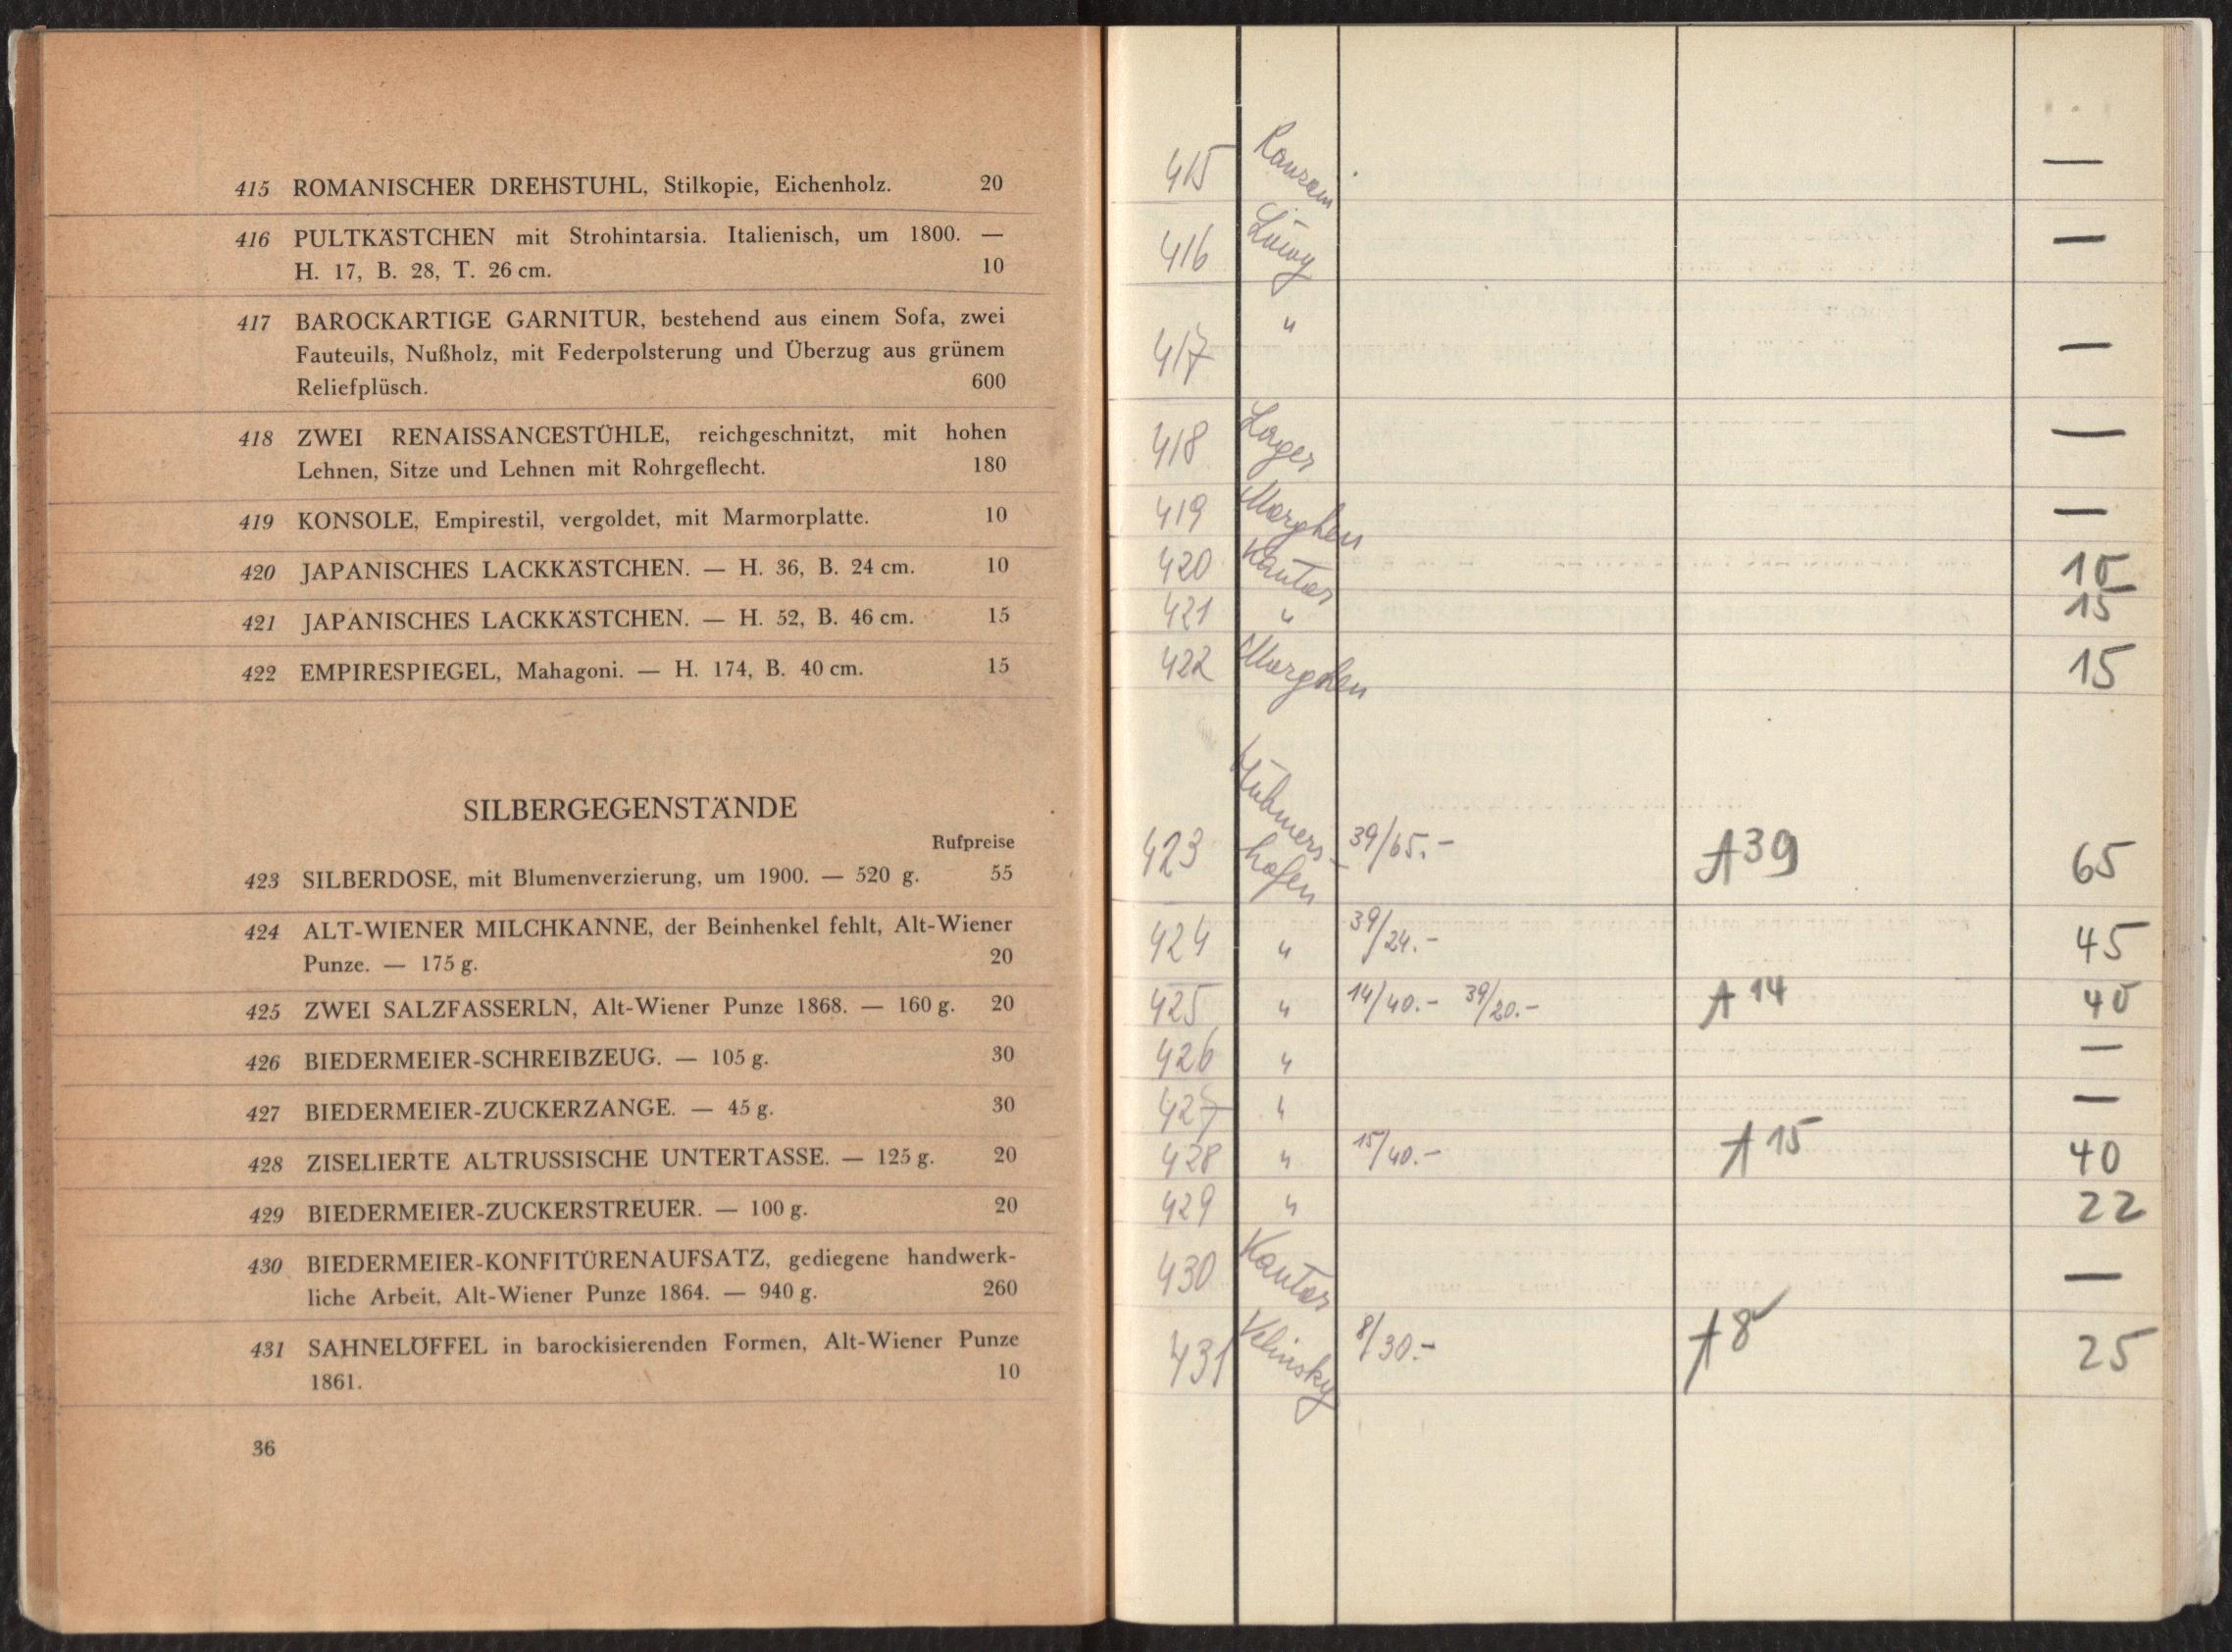 415 ROMANISCHER DREHSTUHL, Stilkopie, Eichenholz. 20
416 PULTKÄSTCHEN mit Strohintarsia. Italienisch, um 1800. —
H. 17, B. 28, T. 26 cm. 10
417 BAROCKARTIGE GARNITUR, bestehend aus einem Sofa, zwei
Fauteuils, Nußholz, mit Federpolsterung und Überzug aus grünem
Reliefplüsch. 600
418 ZWEI RENAISSANCESTÜHLE, reichgeschnitzt, mit hohen
Lehnen, Sitze und Lehnen mit Rohrgeflecht. 180
419 KONSOLE, Empirestil, vergoldet, mit Marmorplatte. 10
420 JAPANISCHES LACKKÄSTCHEN. — H. 36, B. 24 cm. 10
421 JAPANISCHES LACKKÄSTCHEN. — H. 52, B. 46 cm. 15
422 EMPIRESPIEGEL, Mahagoni. — H. 174, B. 40 cm. 15
SILBERGEGENSTÄNDE
Rufpreise
423 SILBERDOSE, mit Blumenverzierung, um 1900. — 520 g. 55
424 ALT-WIENER MILCHKANNE, der Beinhenkel fehlt, Alt-Wiener
Punze. — 175 g. 20
425 ZWEI SALZFASSERLN, Alt-Wiener Punze 1868. — 160 g. 20
426 BIEDERMEIER-SCHREIBZEUG. — 105 g. 30
427 BIEDERMEIER-ZUCKERZANGE. — 45 g. 30
428 ZISELIERTE ALTRUSSISCHE UNTERTASSE. — 125 g. 20
429 BIEDERMEIER-ZUCKERSTREUER. — 100 g. 20
430 BIEDERMEIER-KONFITÜRENAUFSATZ, gediegene handwerk-
liche Arbeit, Alt-Wiener Punze 1864. — 940 g. 260
431 SAHNELÖFFEL in barockisierenden Formen, Alt-Wiener Punze
1861. 10
36
415 —
416 —
417 " —
418 Lager —
419 Morghen —
420 Kantor 10
421 " 15
422 Morghen 15
423 hofen 39/65.- A 39 65
424 " 39/24.- 45
425 " 14/40.- 39/20.- A 14 40
426 " —
427 " —
428 " 15/40.- A 15 40
429 " 22
430 Kantor —
431 Klinsky 8/30.- A 8 25